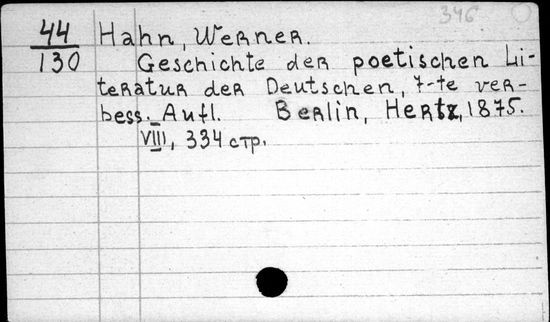 346
44
130
Hahn, Werner.
Geschichte der poetischen Li-
teratur der Deutschen, 7-te ver-
bess. Aufl. Berlin, Hertz, 1875.
VIII, 334 стр.